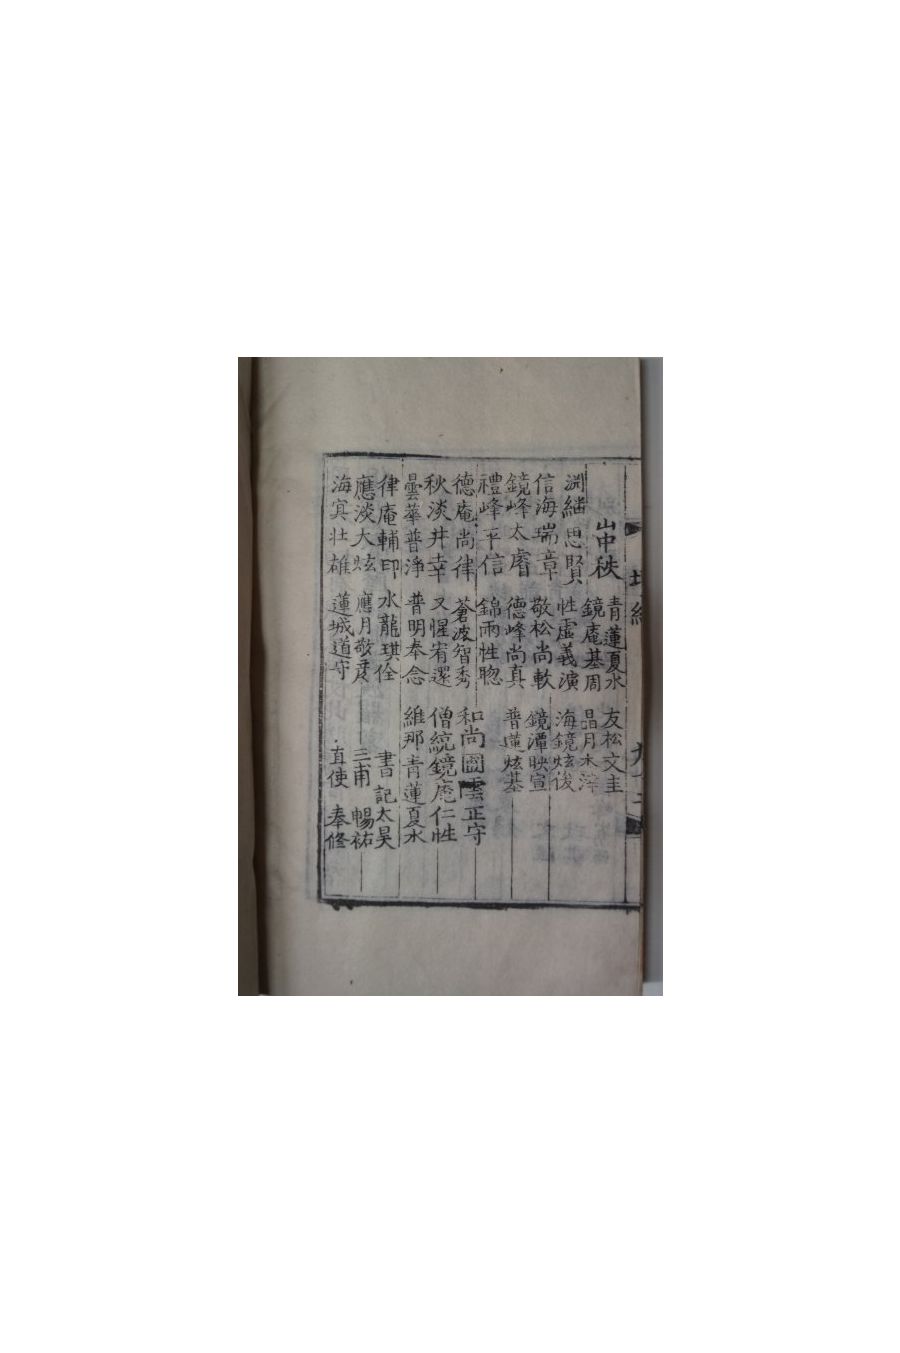 山中秩 青蓮夏水 友松文圭
鏡庵基周 晶月
淵 思賢 性虛義演 海鏡炫俊
信海瑞章 敬松尚軟 鏡潭映宣
鏡峰太睿 德峰尚真 普蓮炫基
禮峰平信 錦雨性聦
德庵尚律 蒼波智秀 和尚圓雲正守
秋淡井幸 又惺宥還 僧統鏡庵仁性
曇華普淨 普明奉念 維那青蓮夏水
律庵輔印 水龍琪佺 書記太昊
應淡大炫 應月敬彦 三甫 暢祐
海宾壮雄 蓮城道守 直使 奉修